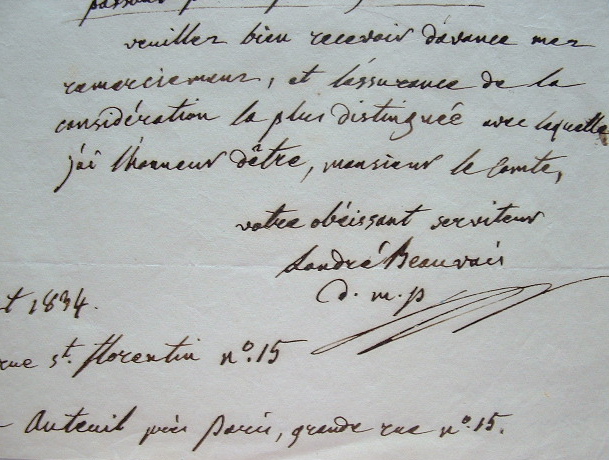 veuillez bien recevoir d'avance mes
remerciemens, et l'assurance de la
considération la plus distinguée avec laquelle
j'ai l'honneur d'être, monsieur le Comte,
votre obéissant serviteur
Landré Beauvais
d. m. p
t 1834.
rue st. florentin n°. 15
Auteuil près Paris, grande rue n°. 15.